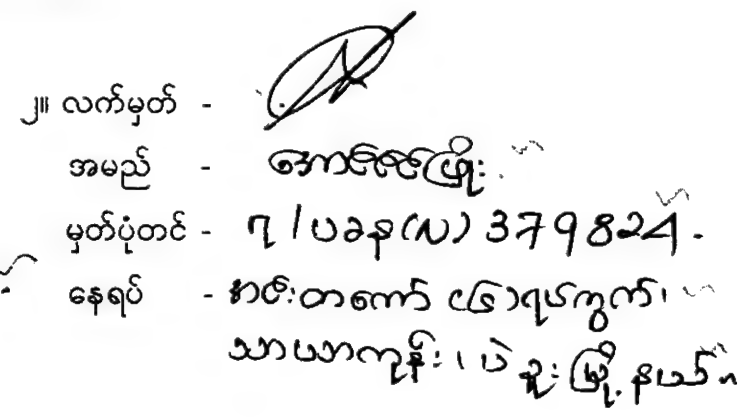 ၂။ လက်မှတ် -
အမည် - အောင်ဇင်ဖြိုး
မှတ်ပုံတင် - ၇/ပခန(လ) 379824.
နေရပ် - အင်းတကော် (၆)ရပ်ကွက်၊
သာယာကုန်း၊ ပဲခူးမြို့နယ်။